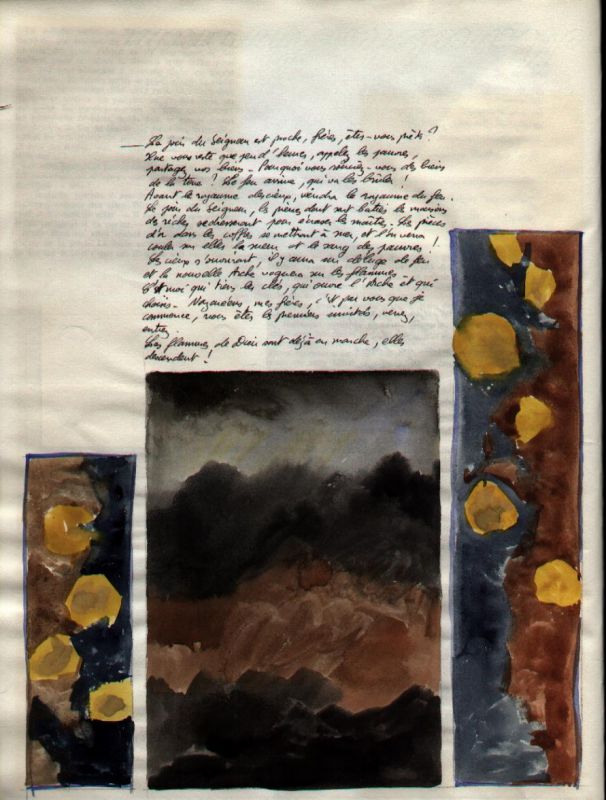 _ Le jour du Seigneur est proche, frères, êtes-vous prêts ?
Il ne vous reste que peu d'heures, appelez les pauvres,
partagez vos biens _ Pourquoi vous souciez-vous des biens
de la terre ? Le feu arrive, qui va les brûler !
Avant le royaume des cieux, viendra le royaume du feu.
Le jour du Seigneur, les pierres dont sont bâties les maisons
de riche se dresseront pour écraser les maîtres. Les pièces
d'or dans les coffres se mettront à suer, et l'on verra
couler sur elles la sueur et le sang des pauvres !
Les cieux s'ouvriront, il y aura un déluge de feu
et la nouvelle Arche voguera sur les flammes _
C'est moi qui tiens les clés, qui ouvre l'Arche et qui
choisis _ mes frères, c'est par vous que je
commence, vous êtes les premiers invités, venez,
entrez
Les flammes de Dieu sont déjà en marche, elles
descendent !